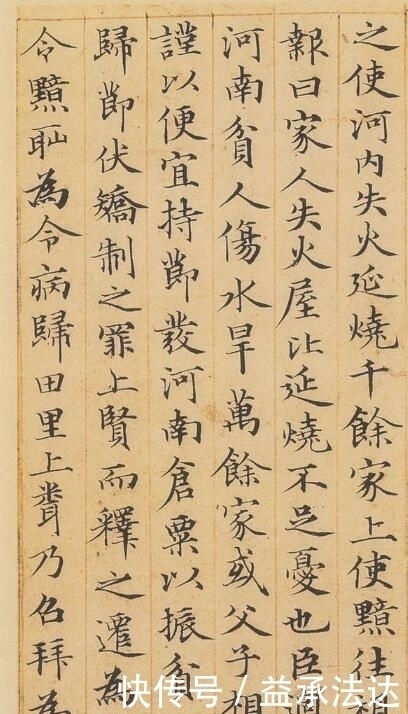 之使河内失火延燒千餘家上使黯往
報曰家人失火屋比延燒不足憂也臣
河南貧人傷水旱萬餘家或父子相
謹以便宜持節發河南倉粟以振貧
歸節伏矯制之罪上賢而釋之遷為
令黯耻為令病歸田里上聞乃召拜為
快传号 / 益承法达